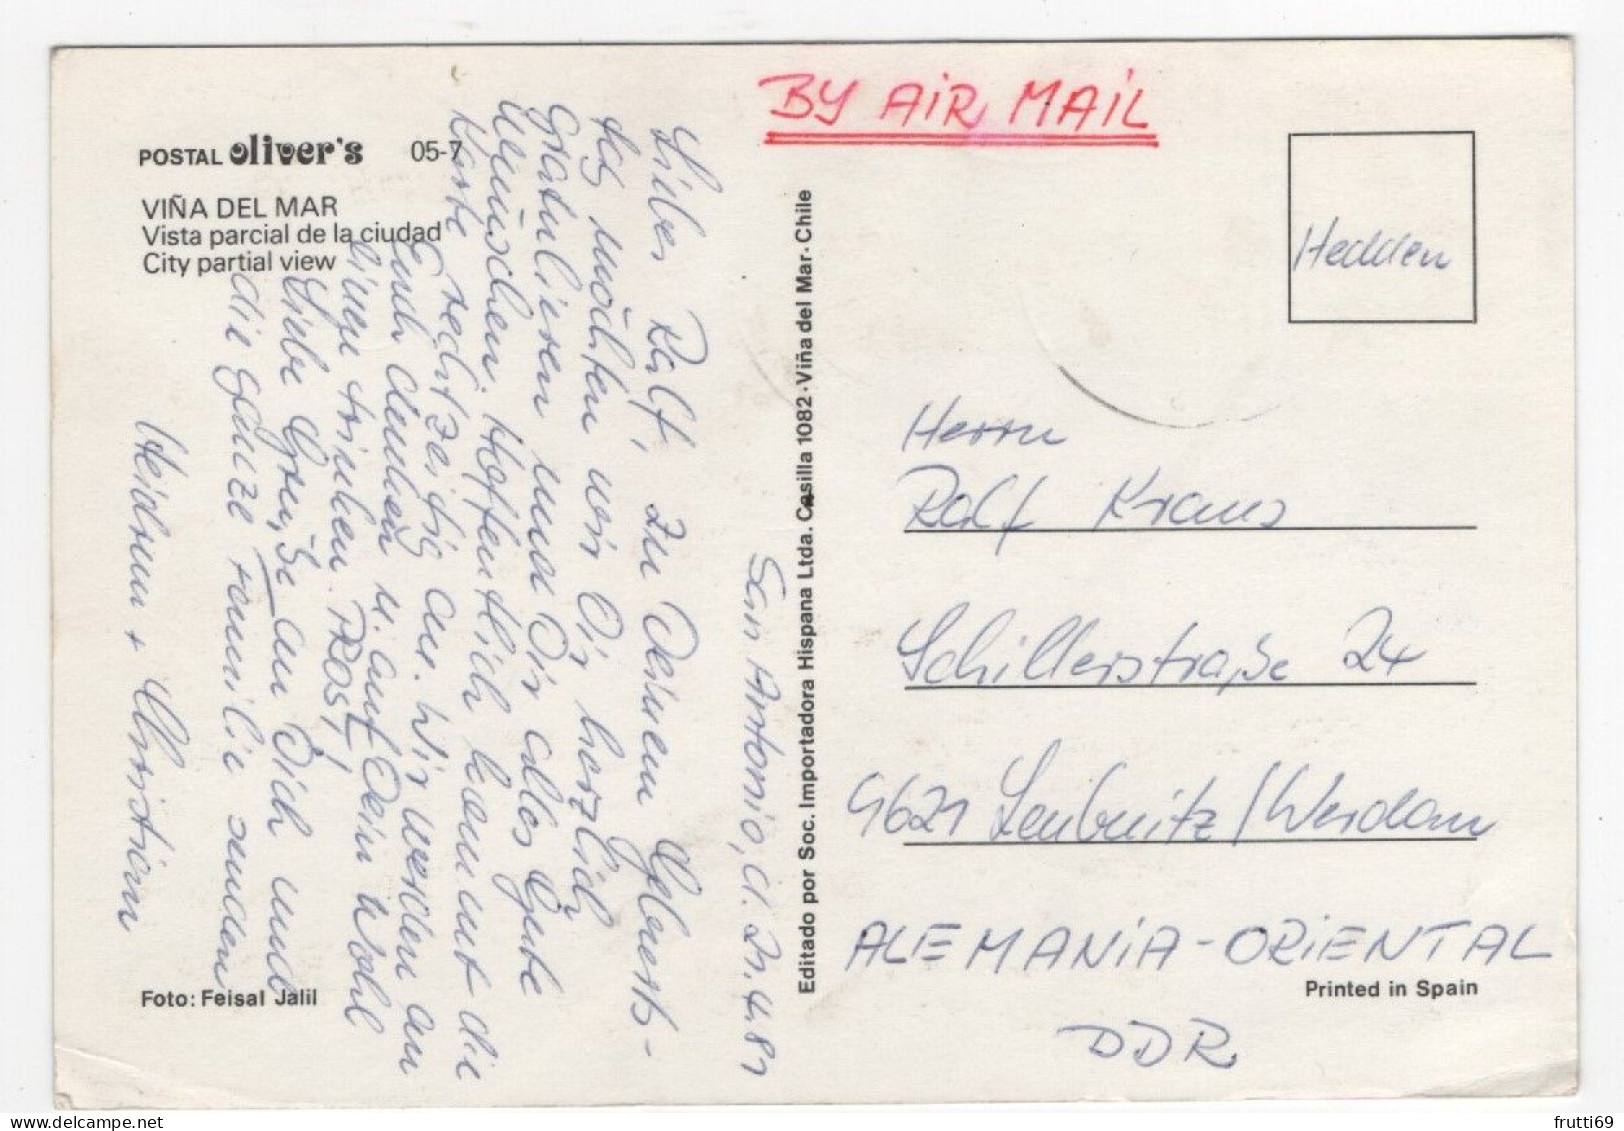 BY AIR MAIL
POSTAL oliver's 05-7
VIÑA DEL MAR
Vista parcial de la ciudad
City partial view
San Antonio, d. 21.4.81
Lieber Ralf, zu Deinem Geburts-
tag möchten wir Dir herzlich
gratulieren und Dir alles Gute
wünschen. Hoffentlich kommt die
Karte rechtzeitig an. Wir werden an
Euch denken u. auf Dein Wohl
einen trinken. PROST!
Liebe Grüße an Dich und
die ganze Familie senden
Heidrun + Christian
Foto: Feisal Jalil
Editado por Soc. Importadora Hispana Ltda. Casilla 1082 · Viña del Mar · Chile
Hedden
Herrn
Ralf Kraus
Schillerstraße 24
9621 Leubnitz/Werdau
ALEMANiA-ORiENTAL
Printed in Spain
DDR
frutti69